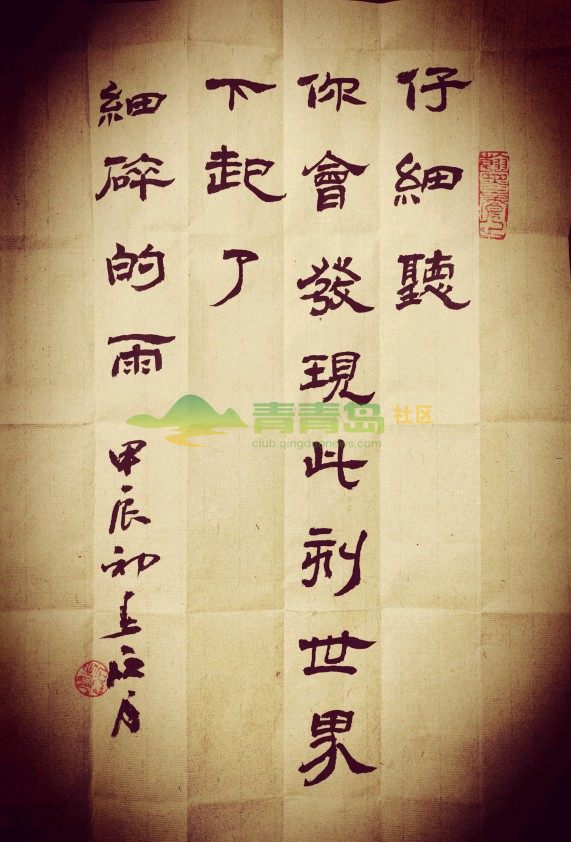 仔細聽
你會發現此刻世界
下起了
細碎的雨
甲辰初春
青青岛社区
club.qingdaonews.com